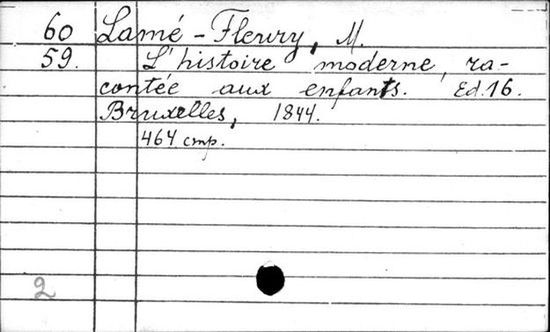 60 Lamé-Fleury, M.
59. L'histoire moderne, ra-
contée aux enfants. Ed. 16.
Bruxelles, 1844.
464 стр.
2